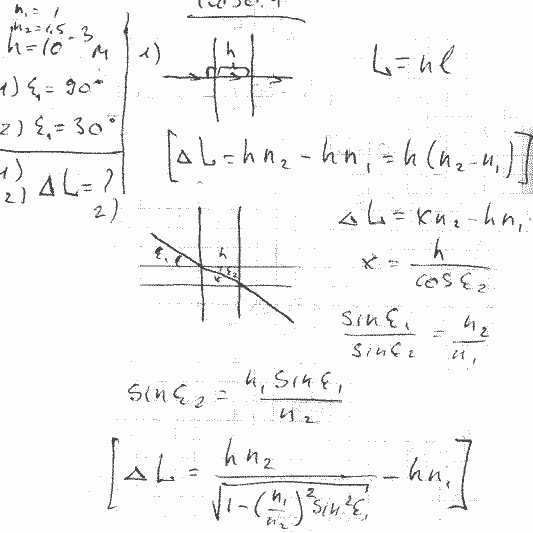 n₁ = 1
n₂ = 1,5
h = 10⁻³ м
1) ξ₁ = 90°
2) ξ₁ = 30°
1)
2) ΔL = ?
1)
h
L = nl
[ΔL = hn₂ - hn₁ = h(n₂ - n₁)]
2)
ξ₁
h
x ξ₂
ΔL = xn₂ - hn₁
x = h / cos ξ₂
sin ξ₁ / sin ξ₂ = n₂ / n₁
sin ξ₂ = n₁ sin ξ₁ / n₂
[ΔL = hn₂ / √(1 - (n₁/n₂)² sin² ξ₁) - hn₁]